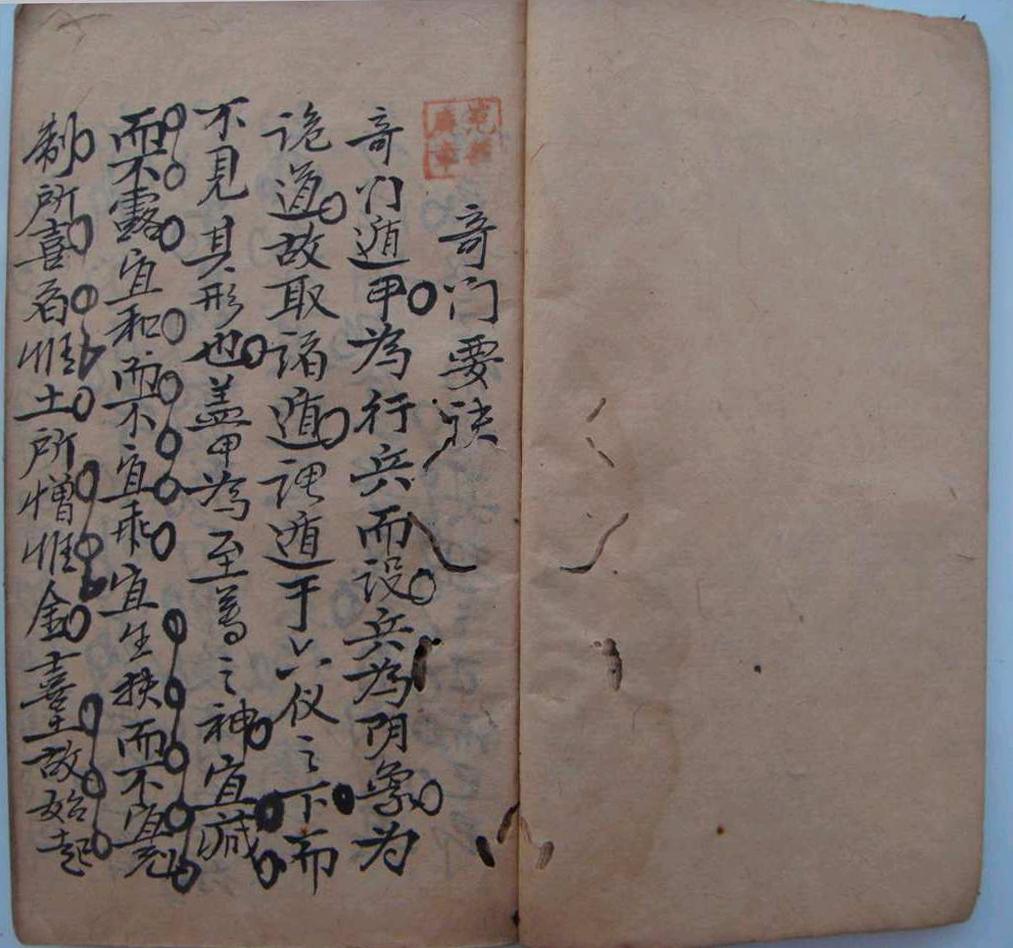 奇门要诀
奇门遁甲为行兵而设兵为阴象为
诡道故取诸遁谓遁于六仪之下而
不見其形也盖甲为至尊之神宜藏
而不露宜和而不宜乖宜生扶而不宜克
制所喜者惟土所憎惟金喜土故始起